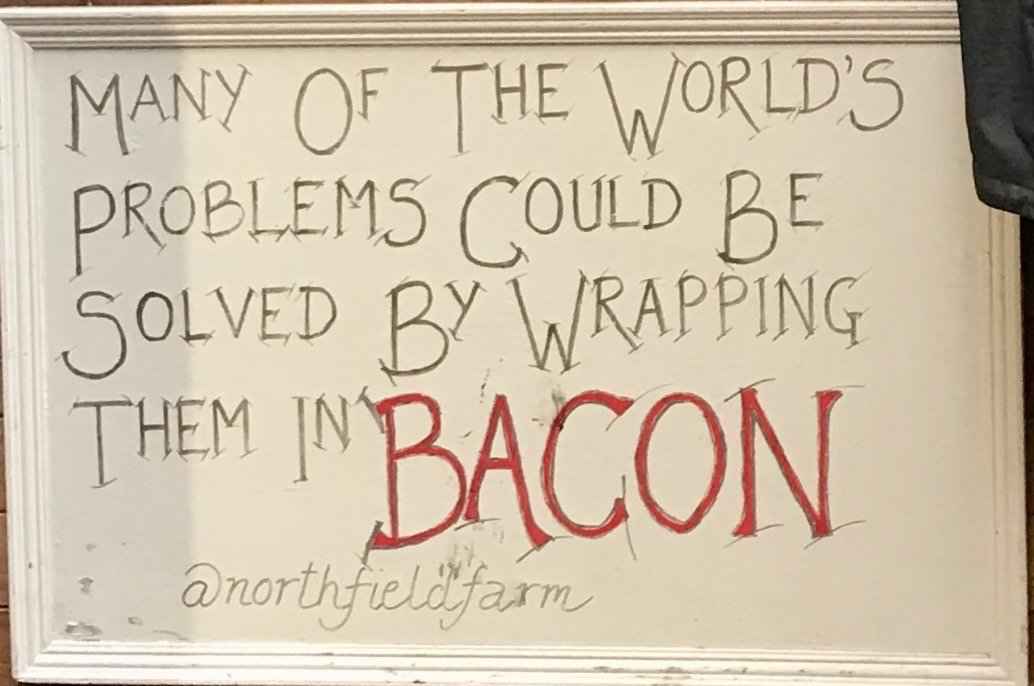 MANY OF THE WORLD'S
PROBLEMS COULD BE
SOLVED BY WRAPPING
THEM IN BACON
@northfieldfarm